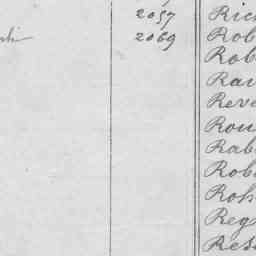 2057 Ric
2069 Rob
Rob
Rau
Reve
Rou
Rab
Rob
Roh
Reg
Rese